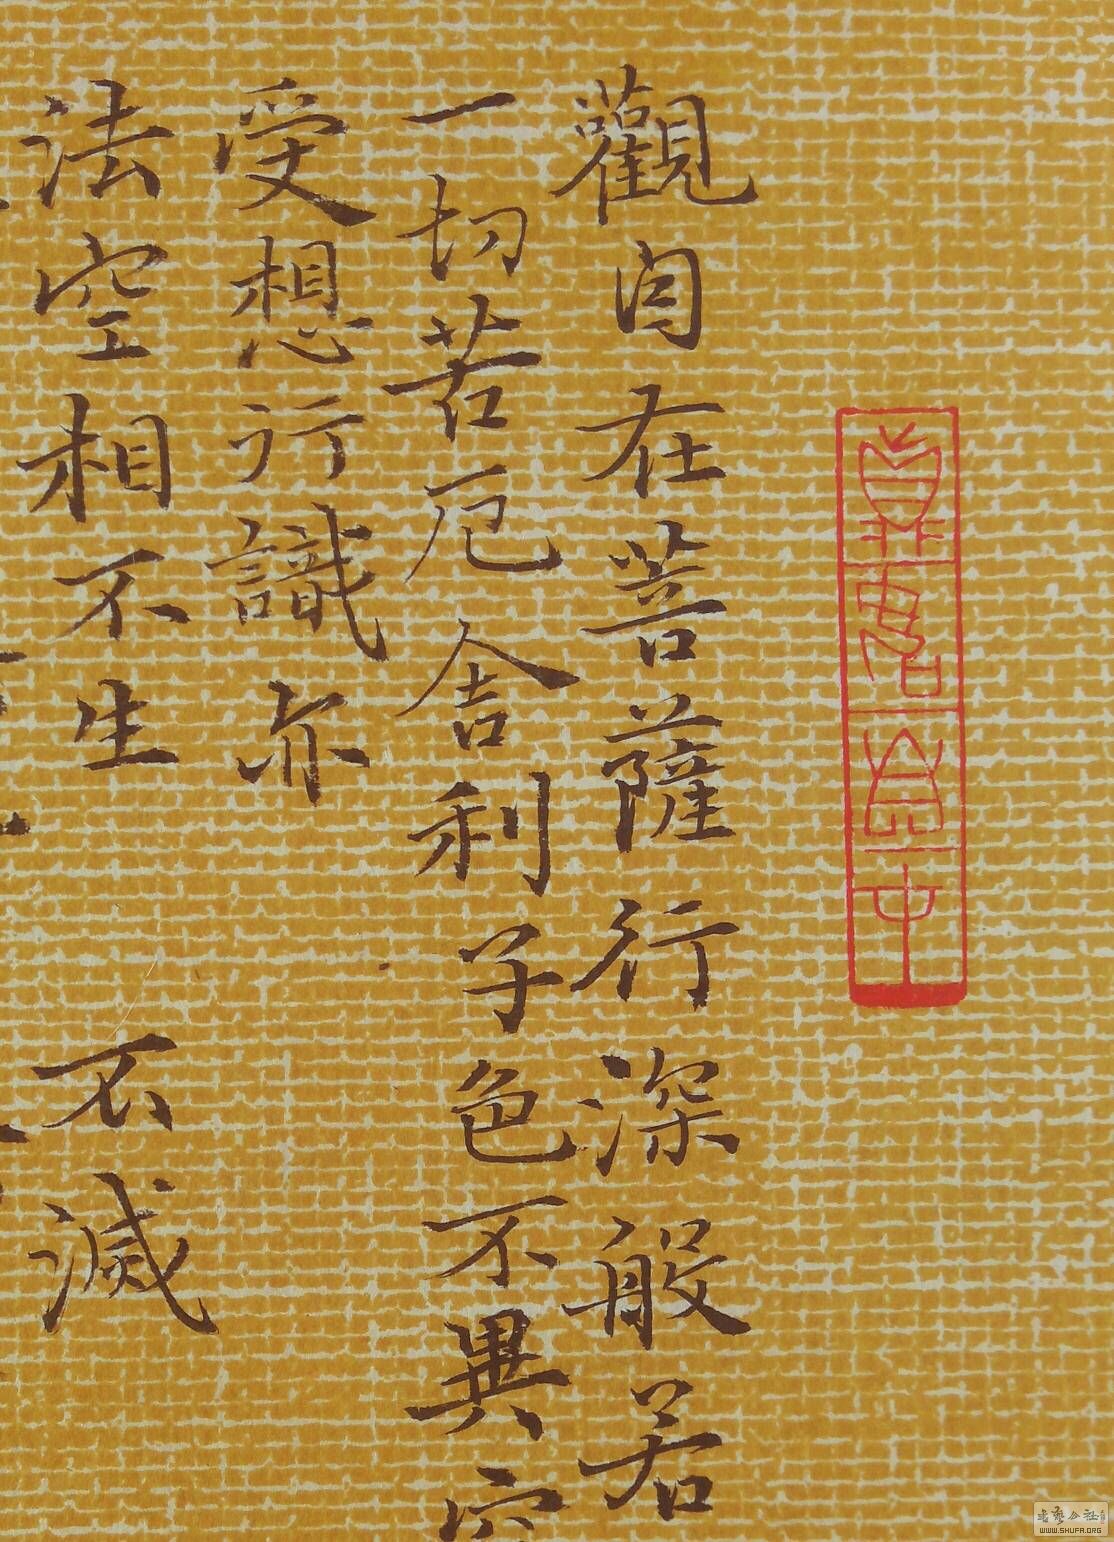 觀自在菩薩行深般若
一切苦厄舍利子色不異空
受想行識亦
法空相不生 不滅
WWW.SHUFA.ORG